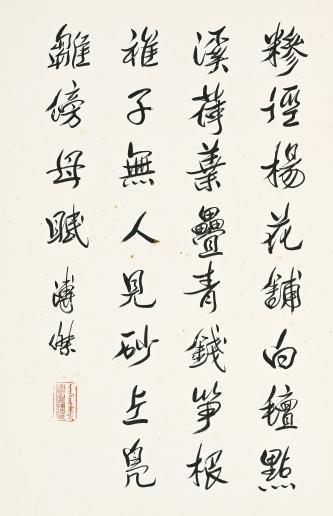 糝徑楊花舖白氊點
溪荷葉疊青錢笋根
稚子無人見砂上鳧
雛傍母眠 溥傑